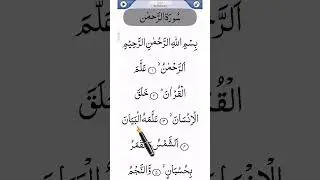 سُورَةُ الرَّحْمٰن
بِسْمِ اللهِ الرَّحْمٰنِ الرَّحِيْمِ
اَلرَّحْمٰنُ ۙ ۱ عَلَّمَ
الْقُرْاٰنَ ؕ ۲ خَلَقَ
الْاِنْسَانَ ۙ ۳ عَلَّمَهُ الْبَيَانَ
۴ اَلشَّمْسُ وَالْقَمَرُ
بِحُسْبَانٍ ۪ ۵ وَّالنَّجْمُ